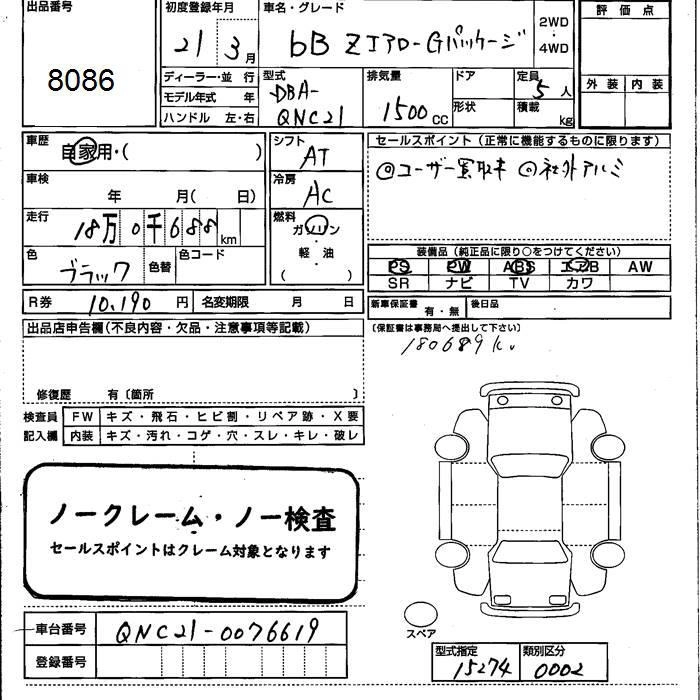 出品番号
8086
初度登録年月
21 3月
車名・グレード
bB Zエアロ-Gパッケージ
2WD
・
4WD
評価点
外装 内装
ディーラー・並行
モデル年式 年
ハンドル 左・右
型式
DBA-
QNC21
排気量
1500cc
ドア
形状
定員
5人
積載
kg
車歴
自家用・( )
車検
年 月( 日)
走行
18万0千688km
色
ブラック
色替
色コード
シフト
AT
冷房
AC
燃料
ガソリン
・
軽油
( )
セールスポイント(正常に機能するものに限ります)
◎ユーザー買取車 ◎社外アルミ
装備品(純正品に限り○をつけてください)
PS PW ABS エアB AW
SR ナビ TV カワ
R券 10,190円
名変期限 月 日
新車保証書 有・無
後日品
(保証書は事務局へ提出して下さい)
180689k.
出品店申告欄(不良内容・欠品・注意事項等記載)
修復歴 有〔箇所 〕
検査員
記入欄
FW キズ・飛石・ヒビ割・リペア跡・X要
内装 キズ・汚れ・コゲ・穴・スレ・キレ・破レ
ノークレーム・ノー検査
セールスポイントはクレーム対象となります
車台番号 QNC21-0076619
登録番号
スペア
型式指定
15274
類別区分
0002